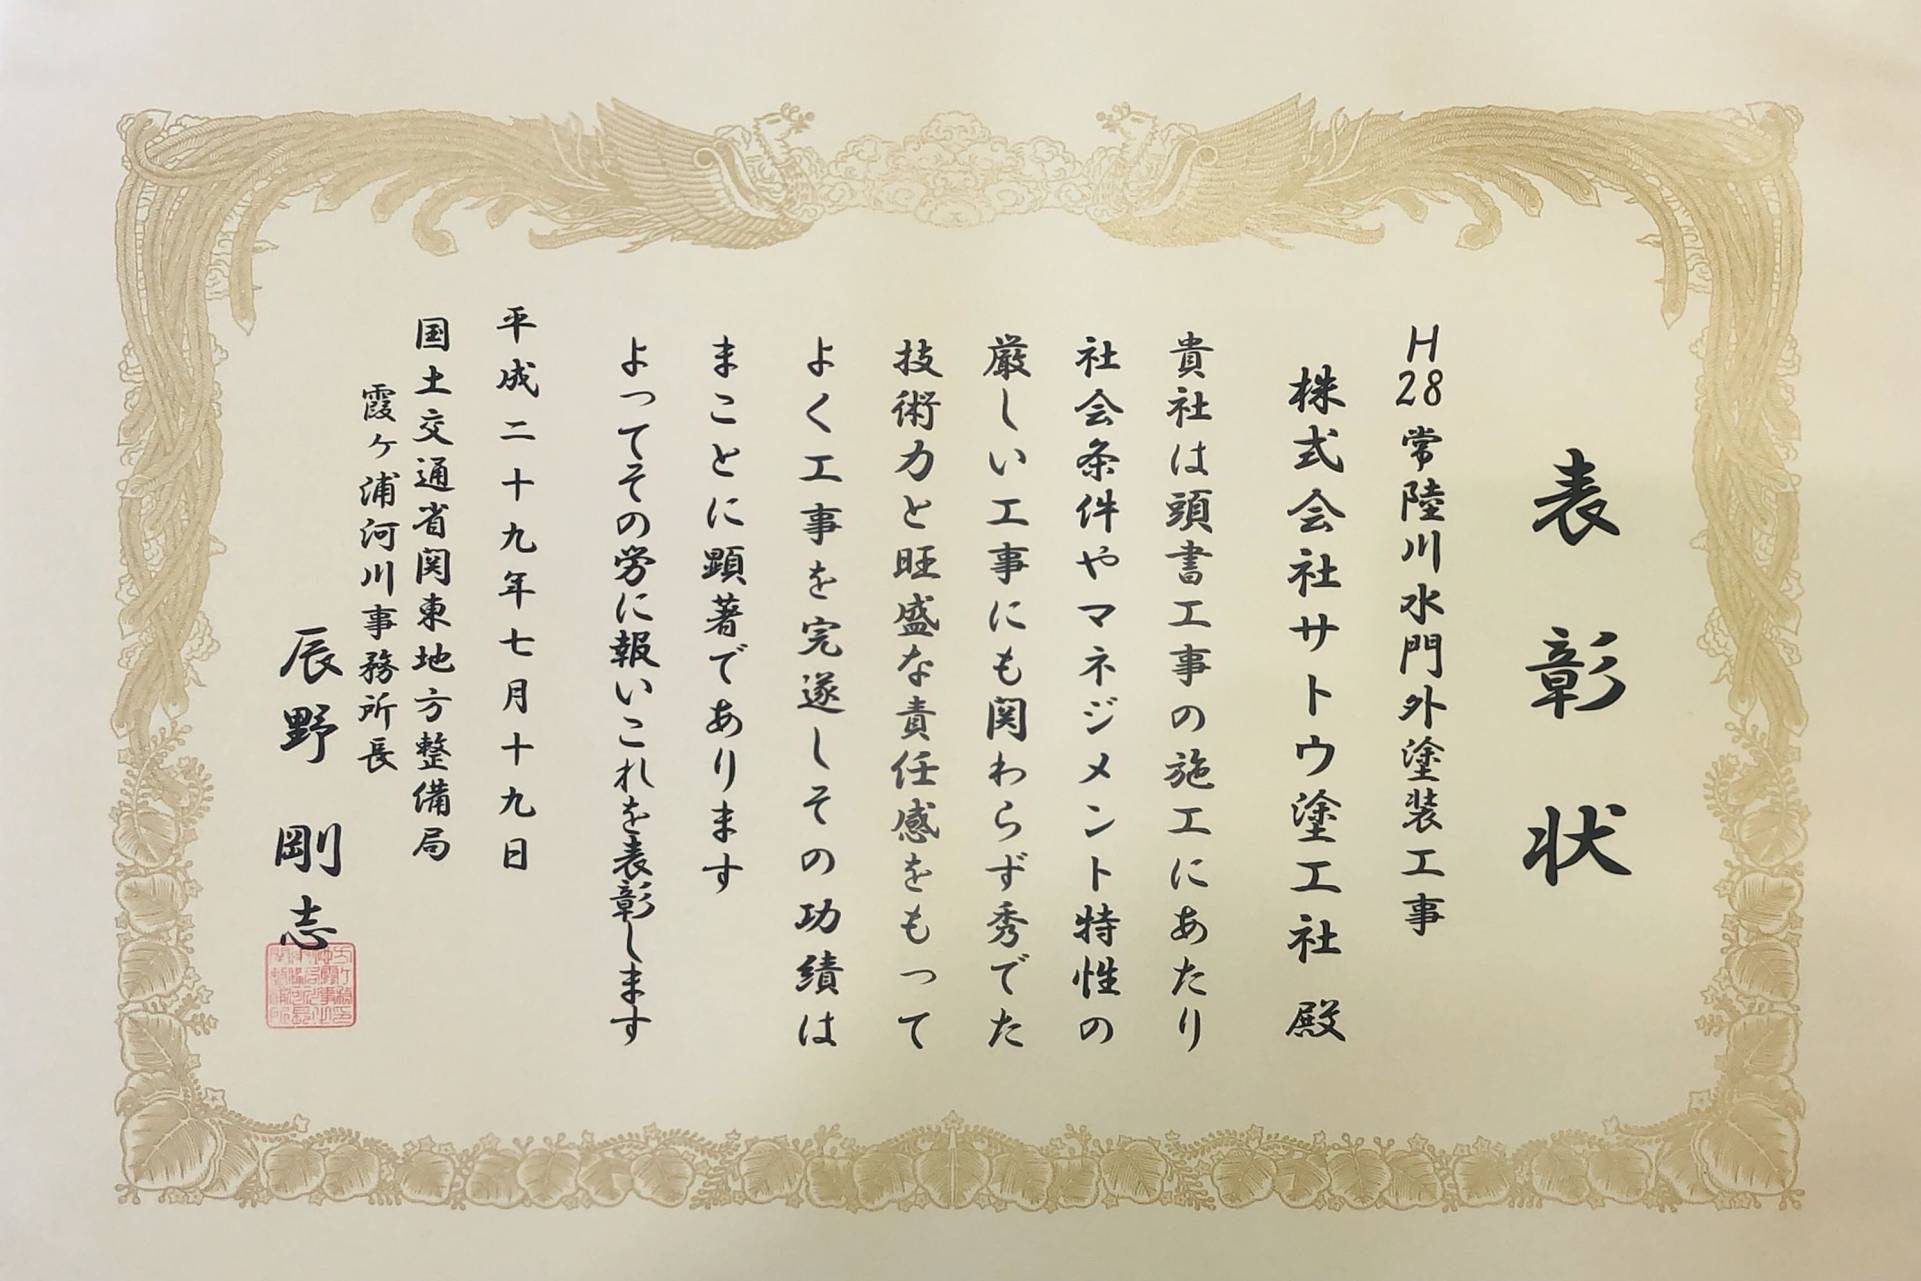 表彰状
H28常陸川水門外塗装工事
株式会社サトウ塗工社 殿
貴社は頭書工事の施工にあたり
社会条件やマネジメント特性の
厳しい工事にも関わらず秀でた
技術力と旺盛な責任感をもって
よく工事を完遂しその功績は
まことに顕著であります
よってその労に報いこれを表彰します
平成二十九年七月十九日
国土交通省関東地方整備局
霞ヶ浦河川事務所長
辰野 剛志